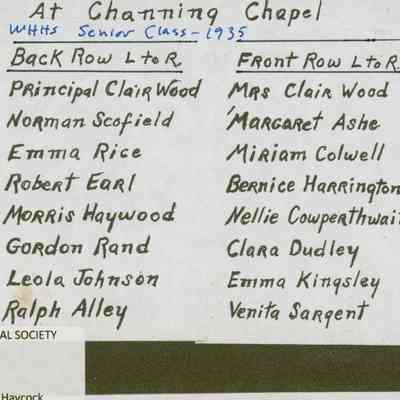 At Channing Chapel
WHHS Senior Class - 1935
Back Row L to R
Principal Clair Wood
Norman Scofield
Emma Rice
Robert Earl
Morris Haywood
Gordon Rand
Leola Johnson
Ralph Alley
Front Row L to R
Mrs Clair Wood
Margaret Ashe
Miriam Colwell
Bernice Harrington
Nellie Cowperthwai
Clara Dudley
Emma Kingsley
Venita Sargent
AL SOCIETY
Haycock